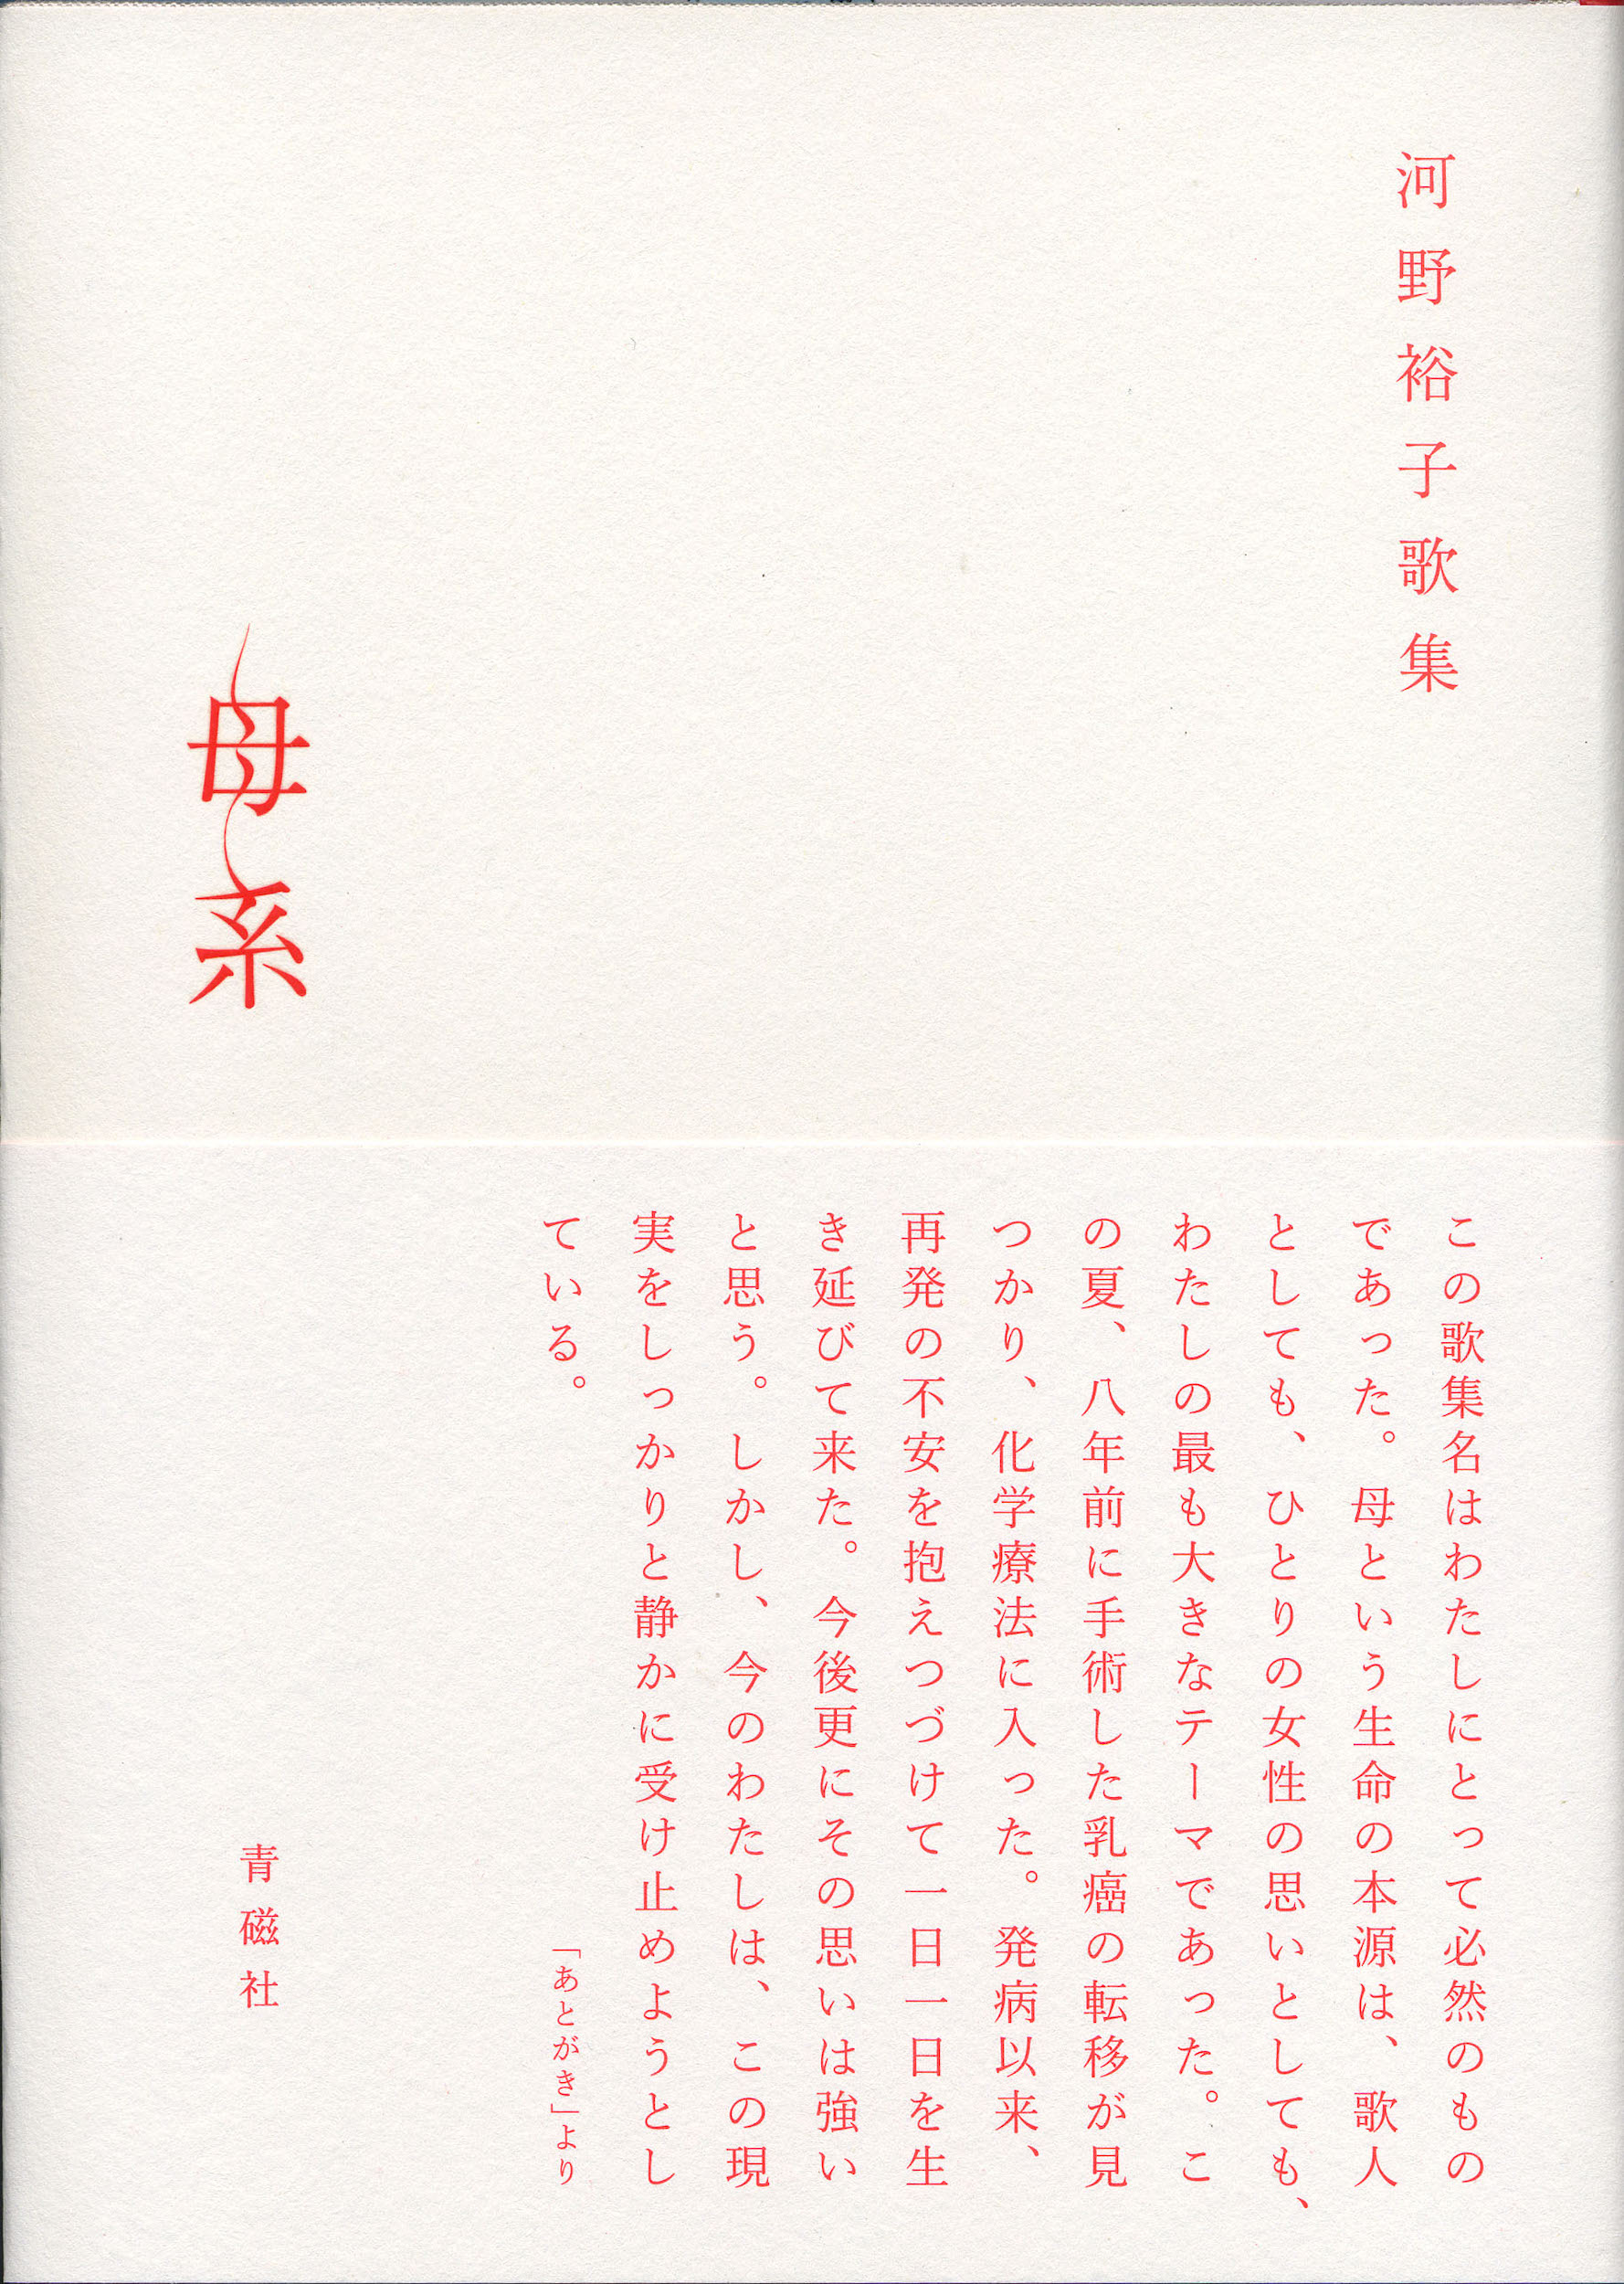 河野裕子歌集
母系
この歌集名はわたしにとって必然のもの
であった。母という生命の本源は、歌人
としても、ひとりの女性の思いとしても、
わたしの最も大きなテーマであった。こ
の夏、八年前に手術した乳癌の転移が見
つかり、化学療法に入った。発病以来、
再発の不安を抱えつづけて一日一日を生
き延びて来た。今後更にその思いは強い
と思う。しかし、今のわたしは、この現
実をしっかりと静かに受け止めようとし
ている。
「あとがき」より
青磁社